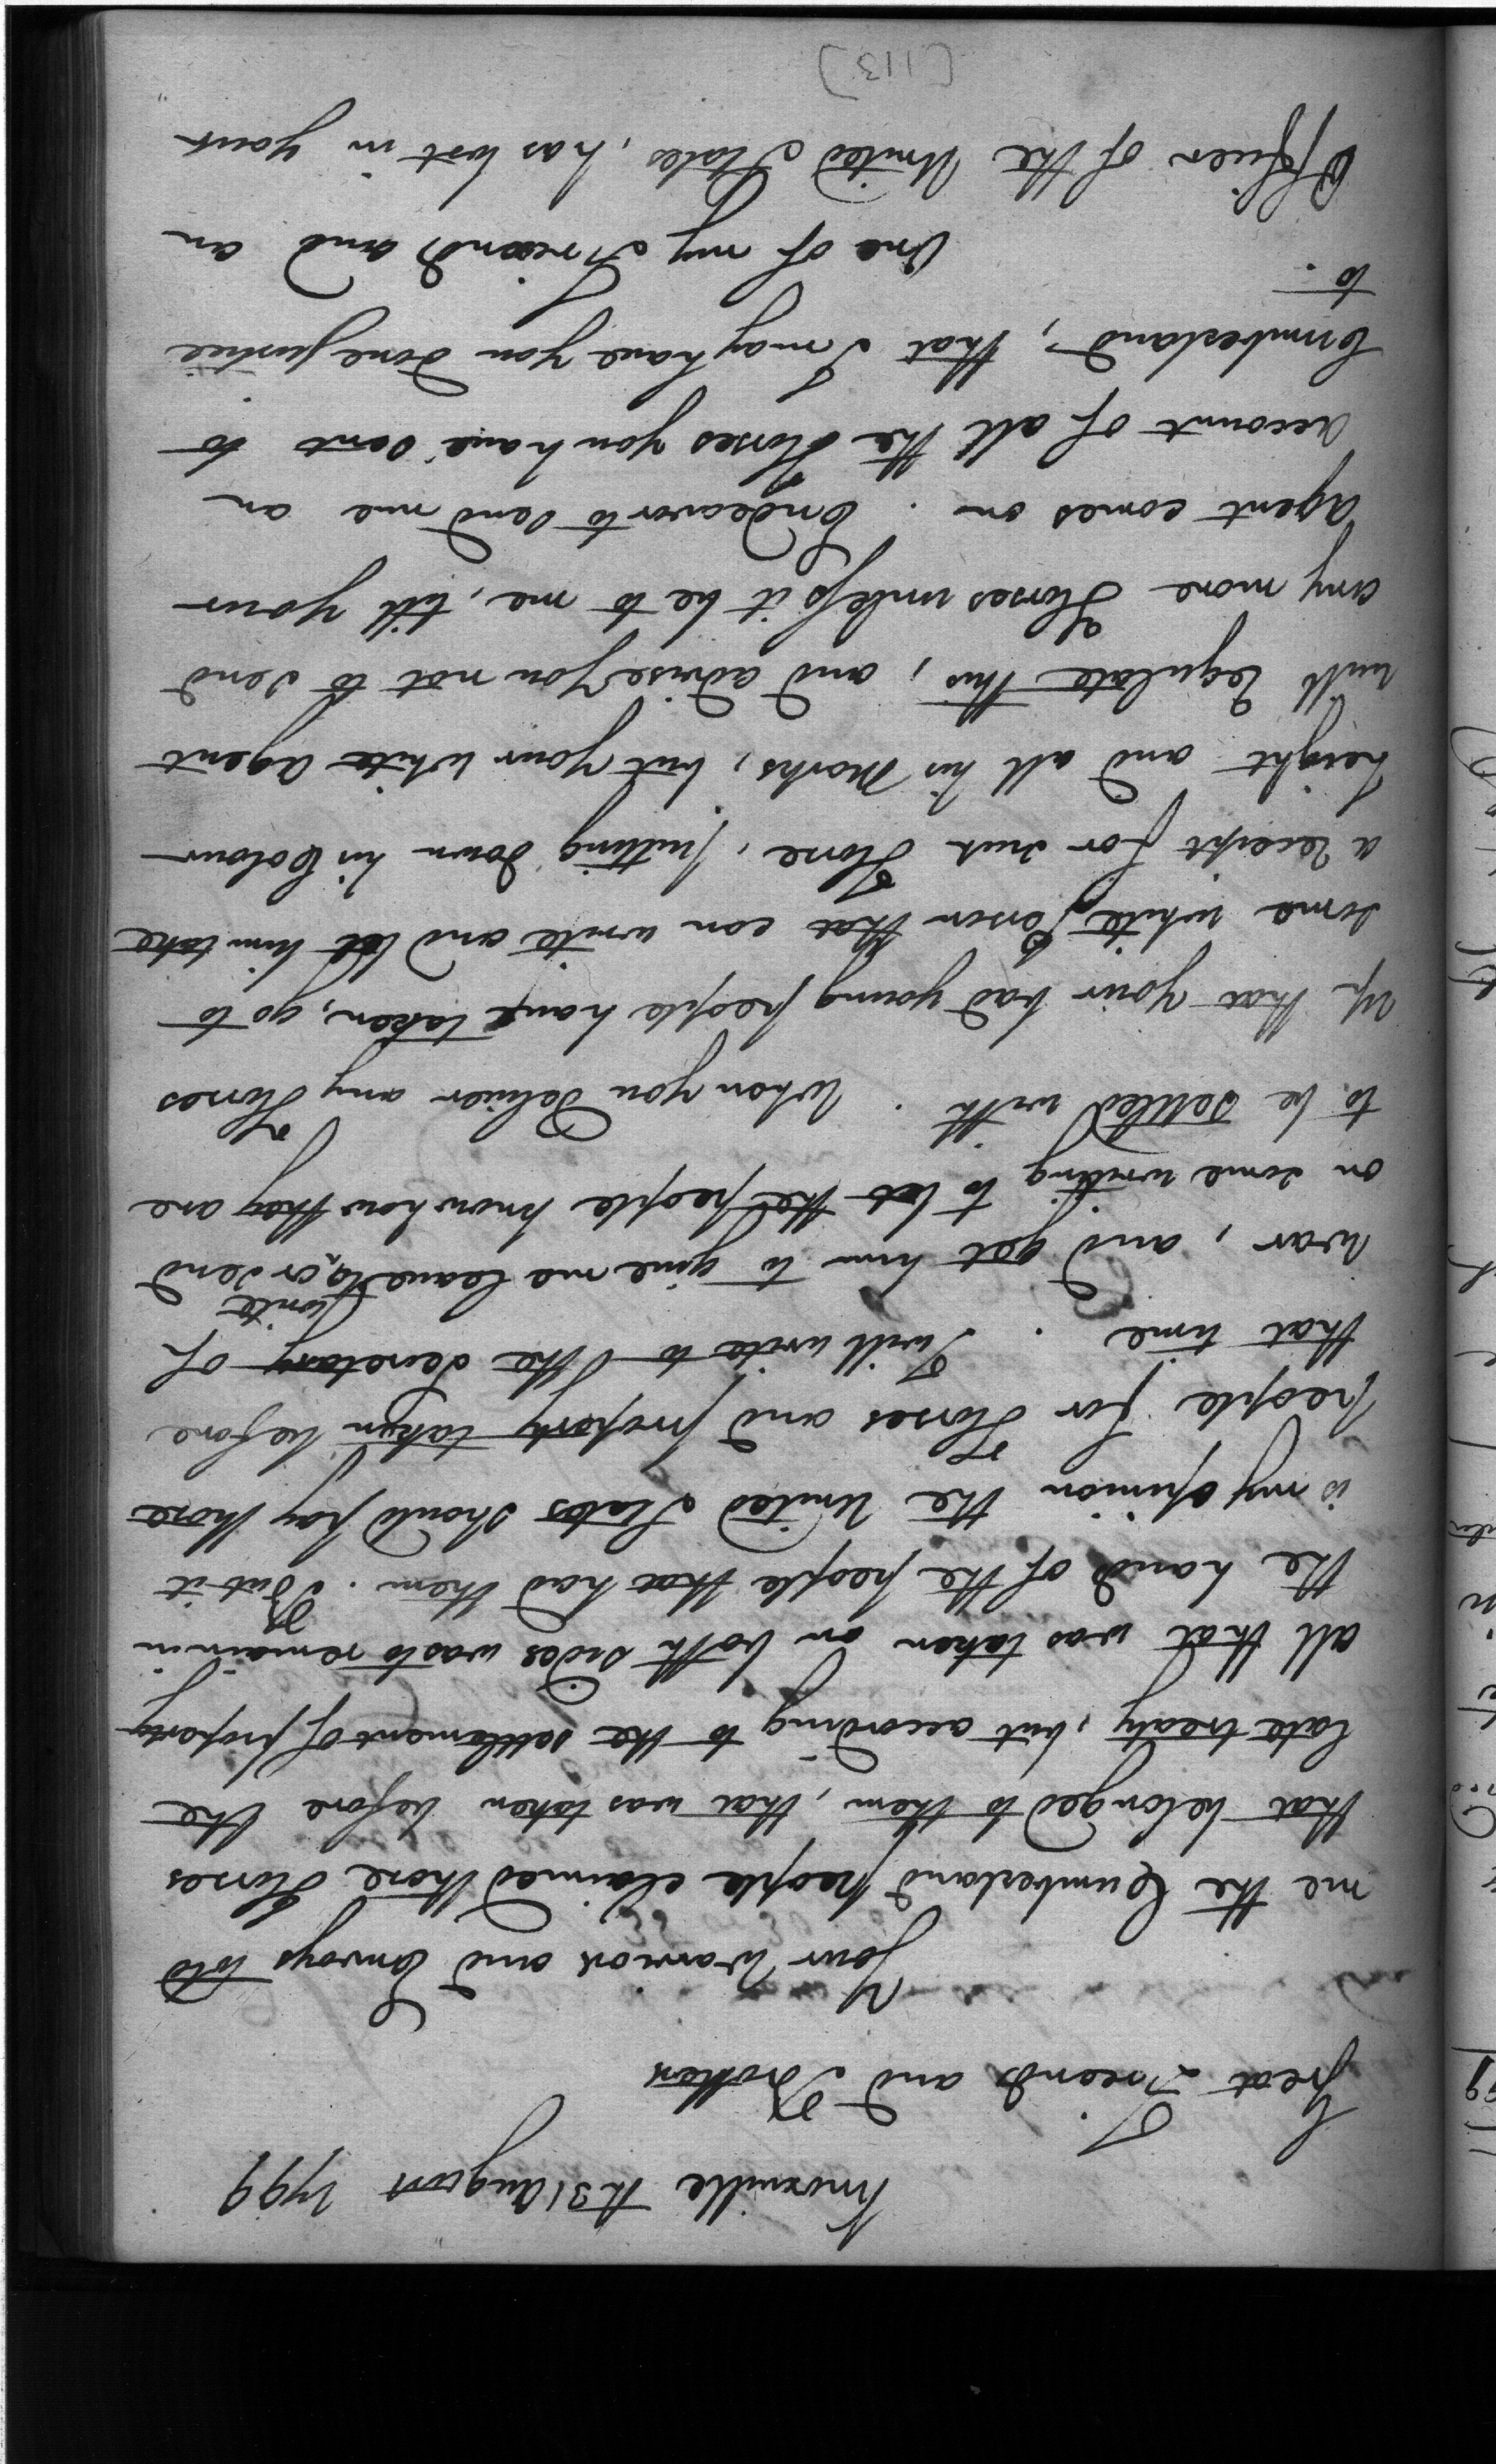 Knoxville the 31 August 1799
Great Friends and Brothers
Your Warriors and Envoys told
me the Cumberland people claimed those Horses
that belonged to them, that was taken before the
late treaty, but according to the settlement of property
all that was taken on both sides was to remain in
the hands of the people that had them. But it
is my opinion the United States should pay those
people for Horses and property taken before
that time. I will write to the Secretary of
War, and get him to give me leave to write, or send
on some writing to let the people know how they are
to be settled with. When you deliver any Horses
up that your bad young people have taken, go to
some white person that can write and let him take
a receipt for such Horse, putting down his Colour
height and all his Marks, but your white agent
will regulate this, and advise you not to send
any more Horses unless it be to me, till your
agent comes on. Endeavor to send me an
account of all the Horses you have sent to
Cumberland, that I may have you done justice
to.
One of my Friends and an
Officer of the United States, has lost in your
(113)